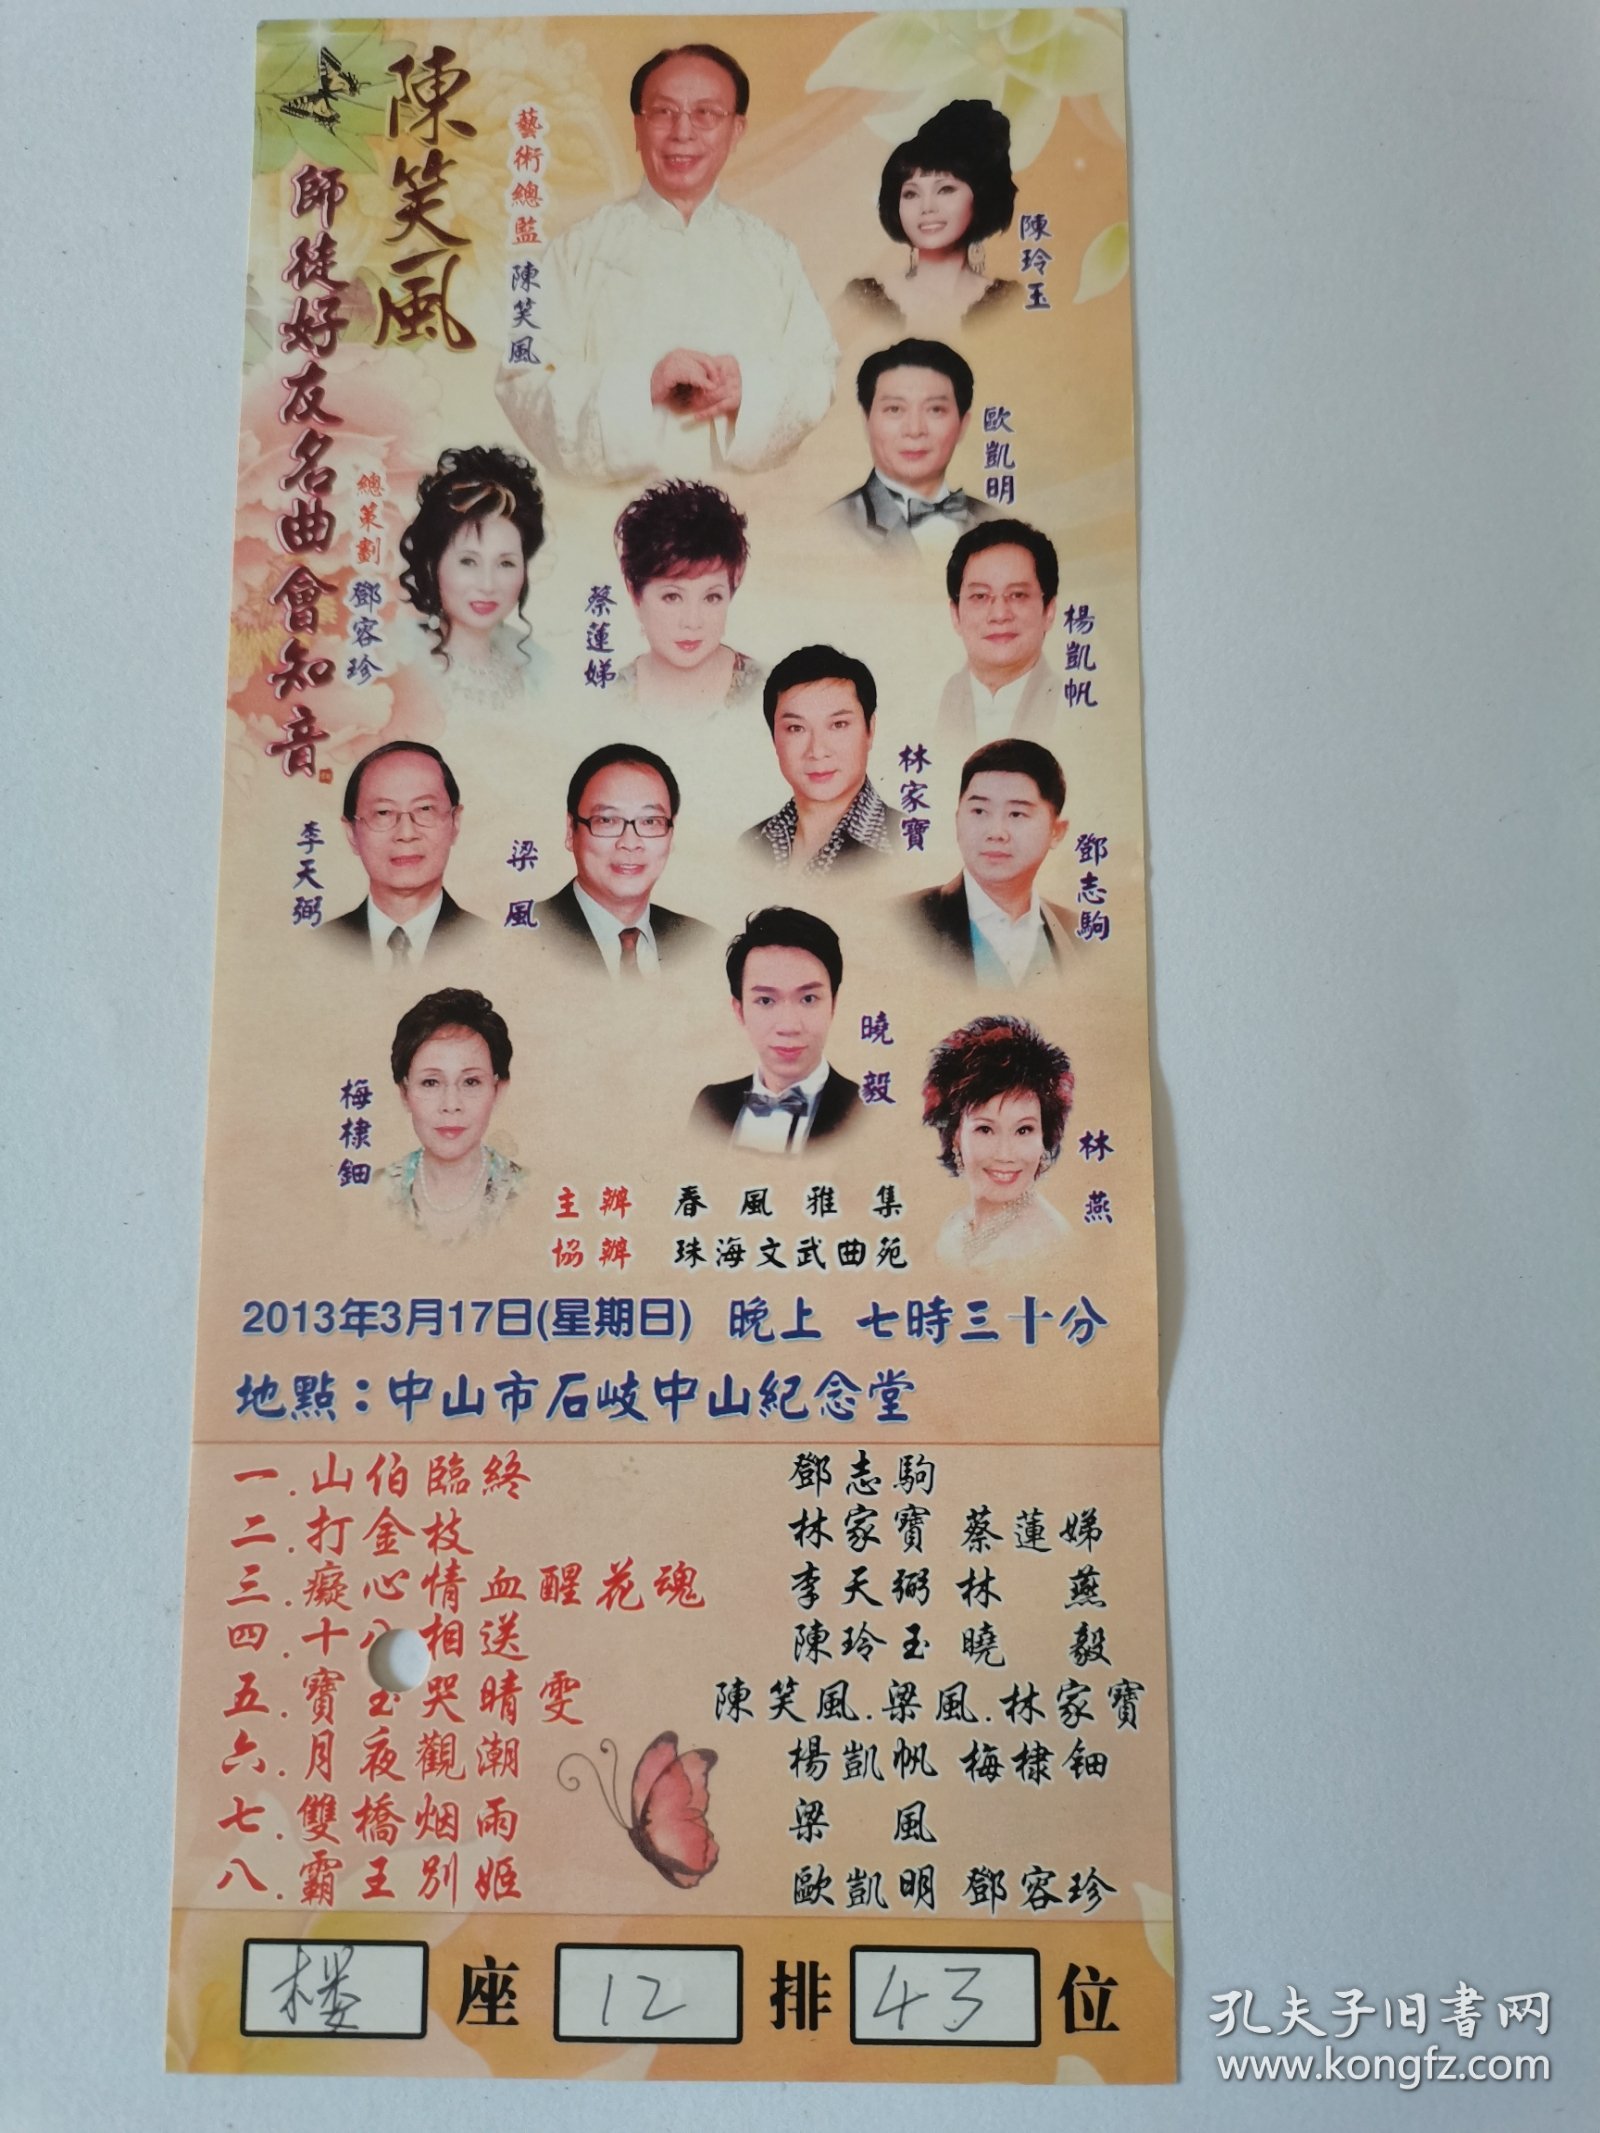 陳笑風
師徒好友名曲會知音
藝術總監 陳笑風
陳玲玉
歐凱明
總策劃 鄧容珍
蔡蓮娣
楊凱帆
林家寶
李天弼
梁風
鄧志駒
曉毅
梅棣鈿
林燕
主辦 春風雅集
協辦 珠海文武曲苑
2013年3月17日(星期日) 晚上 七時三十分
地點：中山市石岐中山紀念堂
一.山伯臨終 鄧志駒
二.打金枝 林家寶 蔡蓮娣
三.癡心情血醒花魂 李天弼 林燕
四.十八相送 陳玲玉 曉毅
五.寶玉哭晴雯 陳笑風.梁風.林家寶
六.月夜觀潮 楊凱帆 梅棣鈿
七.雙橋烟雨 梁風
八.霸王別姬 歐凱明 鄧容珍
楼 座 12 排 43 位
孔夫子旧书网
www.kongfz.com